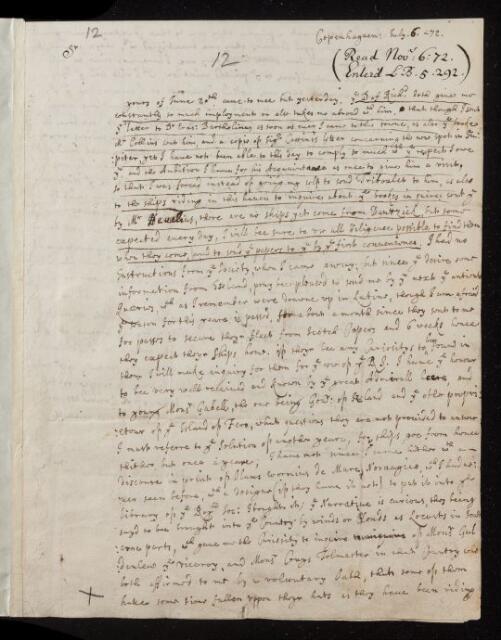 12
Copenhagen July. 6. 72.
12
(Read Nov: 6: 72.
Enterd L.B. 5. 292.)
yours of June 20th came to mee but yesterday, ye D. of Rich: doth gives me
constantly so much imployment or els takes me abroad wth him, that though I sent
ye letter to Dr Eras: Bartholinus as soon as ever I came to this towne, as also ye booke
Mr Collins sent him, and a copy of Sigr Cassini's letter concerning the new spott in Ju-
piter, yet I have not been able to this day to comply so much wth ye respect I owe
ye and the Ambition I have for his Acquaintance as once to give him a visit,
so that I was forced instead of going my self to send to him, as also
to the ships riding in this haven to inquire about ye bookes in sent
by Mr Hevelius, there are no ships yet come from Dantzick, but some
expected every day, I will bee sure to use all diligence possible to find them
when they come, and to send ye papers to ye by ye first conveniency. I had no
instructions from ye Society when I came away; but since ye desire some
information from Island, pray bee pleased to send me by ye next ye
Queries, wch as I remember were drawne up in Latine, though I am afraid
ye season for this yeare is passed, about a month since they sent to me
for passes to secure theyr fleet from Scotch Capers and 6 weeks hence
they expect theyr ships home. if there bee any Curiositys found in
them I will make enquiry for them for ye use of ye R.S. I have ye honour
to bee very well received and known by ye great Admirall and
to young Monsr Gabell, the one being Govr: of Island and ye other propri-
etour of ye Island of Fero, what questions they are not provided to answer
I must referre to ye Solution of another yeare, for ships goe from hence
thither but once a yeare, I have met since I came hither wth a
Discourse in print of Olaus Wormius de Mure Norwagico, wch I had ne-
ver seen before, wch I designe (if they have it not) to put it into ye
Library of ye Royll Soc: I thought ye Narrative is curious they being
sayd to bee brought into ye Country by winds or Clouds as Locusts in South
erne parts, wch gave me the Curiosity to inquire of Monsr Gul
denlew ye Viceroy, and Monsr in that Country who
both affirmed to me by a voluntary Oath, that some of them
have some time fallen uppon theyr hats as they have been riding